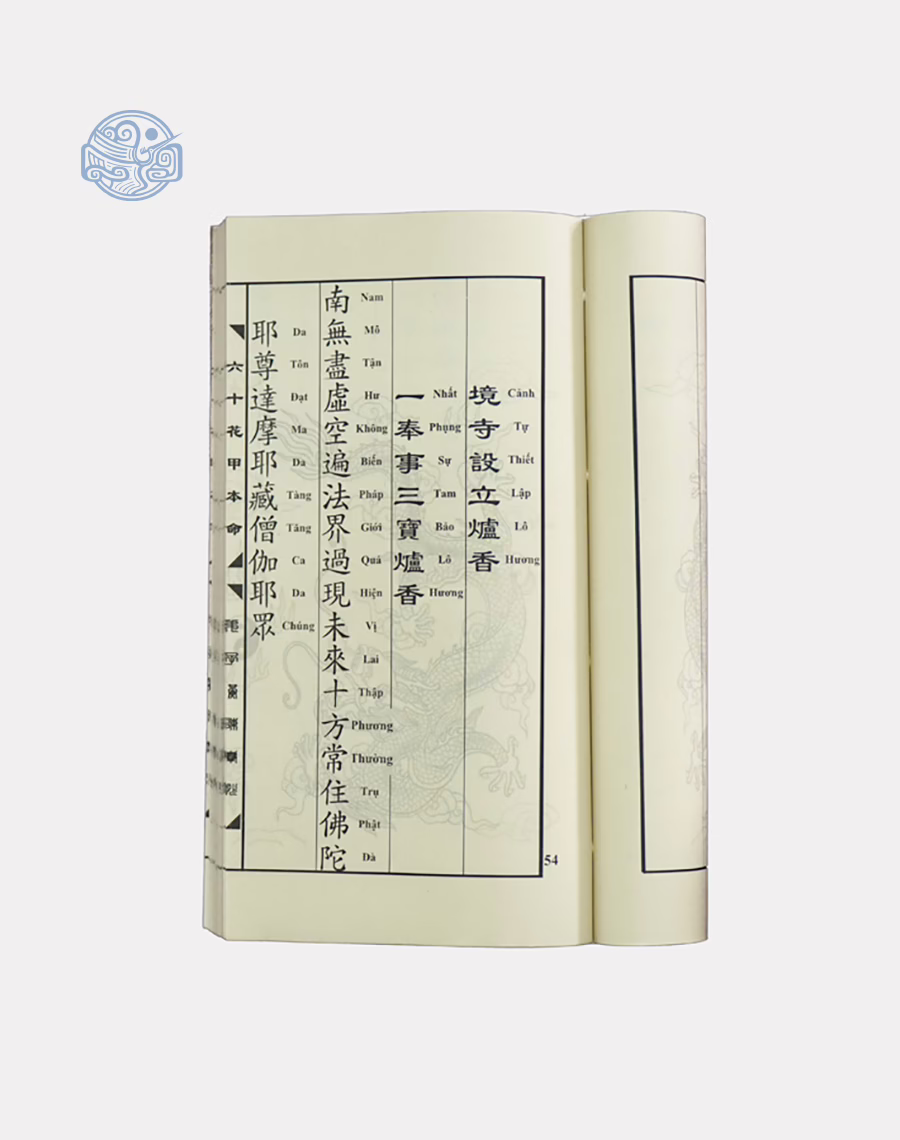 境寺設立爐香
Cảnh Tự Thiết Lập Lô Hương
一奉事三寶爐香
Nhất Phụng Sự Tam Bảo Lô Hương
南無盡虛空遍法界過現未來十方常住佛陀
Nam Mô Tận Hư Không Biến Pháp Giới Quá Hiện Vị Lai Thập Phương Thường Trụ Phật Đà
耶尊達摩耶藏僧伽耶眾
Da Tôn Đạt Ma Da Tàng Tăng Ca Da Chúng
六十花甲本命
54